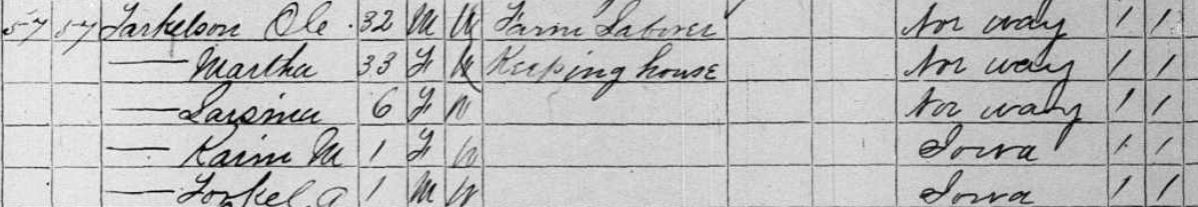 57 57 Tarkelson Ole 32 M W Farm Laborer Nor way 1 1
— Martha 33 F W Keeping house Nor way 1 1
— Larsina 6 F W Nor way 1 1
— Karin M 1 F W Iowa 1 1
— Torkel A 1 M W Iowa 1 1